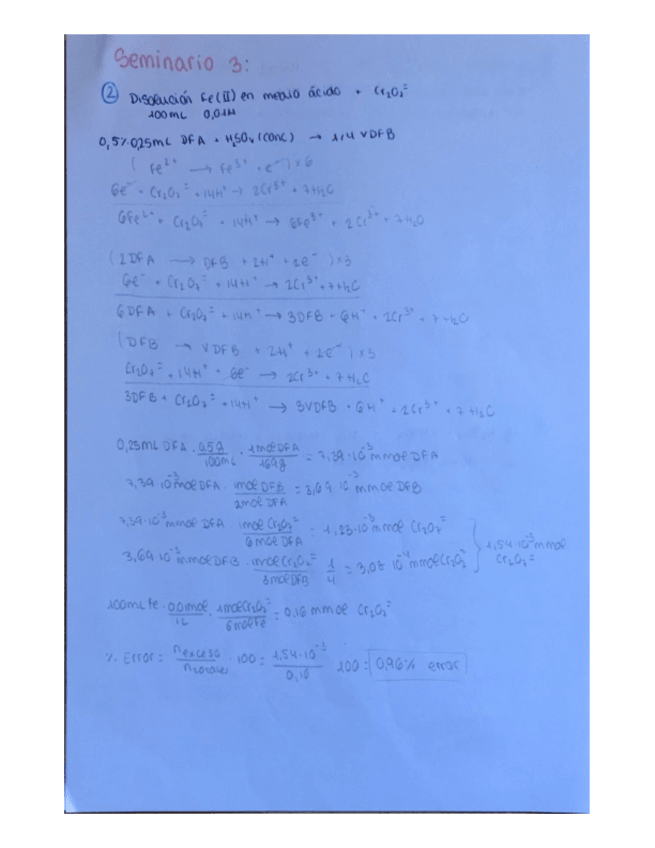 Seminario 3:
② Disolución Fe(II) en medio ácido + Cr₂O₇⁼
100mL 0,01M
0,5% 0,25mL DFA + H₂SO₄ (conc) → 1/4 VDFB
( Fe²⁺ → Fe³⁺ + e⁻ ) x 6
6e⁻ + Cr₂O₇⁼ + 14H⁺ → 2Cr³⁺ + 7H₂O
6Fe²⁺ + Cr₂O₇⁼ + 14H⁺ → 6Fe³⁺ + 2Cr³⁺ + 7H₂O
(2DFA → DFB + 2H⁺ + 2e⁻ ) x 3
6e⁻ + Cr₂O₇⁼ + 14H⁺ → 2Cr³⁺ + 7H₂O
6DFA + Cr₂O₇⁼ + 14H⁺ → 3DFB + 6H⁺ + 2Cr³⁺ + 7H₂O
(DFB → VDFB + 2H⁺ + 2e⁻ ) x 3
Cr₂O₇⁼ + 14H⁺ + 6e⁻ → 2Cr³⁺ + 7H₂O
3DFB + Cr₂O₇⁼ + 14H⁺ → 3VDFB + 6H⁺ + 2Cr³⁺ + 7H₂O
0,25mL DFA · 0,5g/100mL · 1mol DFA/169g = 7,39·10⁻³ mmol DFA
7,39·10⁻³ mmol DFA · 1mol DFB/2mol DFA = 3,69·10⁻³ mmol DFB
7,39·10⁻³ mmol DFA · 1mol Cr₂O₇⁼/6mol DFA = 1,23·10⁻³ mmol Cr₂O₇⁼
3,69·10⁻³ mmol DFB · 1mol Cr₂O₇⁼/3mol DFB · 1/4 = 3,08·10⁻⁴ mmol Cr₂O₇⁼ } 1,54·10⁻³ mmol Cr₂O₇⁼
100mL Fe · 0,01mol/1L · 1mol Cr₂O₇⁼/6mol Fe = 0,16 mmol Cr₂O₇⁼
% Error = n exceso/n totales · 100 = 1,54·10⁻³/0,16 · 100 = 0,96% error